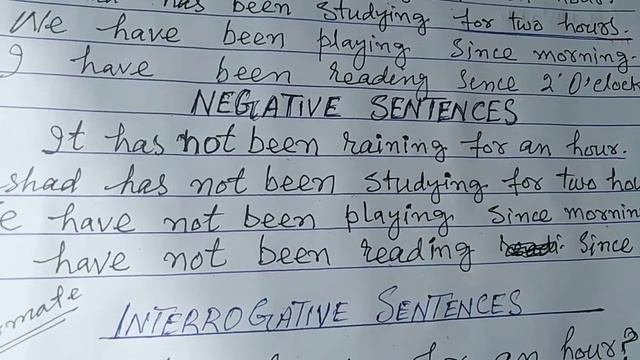 has been studying for two hours.
We have been playing since morning.
I have been reading sence 2'O'clock
NEGATIVE SENTENCES
It has not been raining for an hour.
shad has not been studying for two hou
e have not been playing since mornin
have not been reading since
mate
INTERROGATIVE SENTENCES
for an hour?